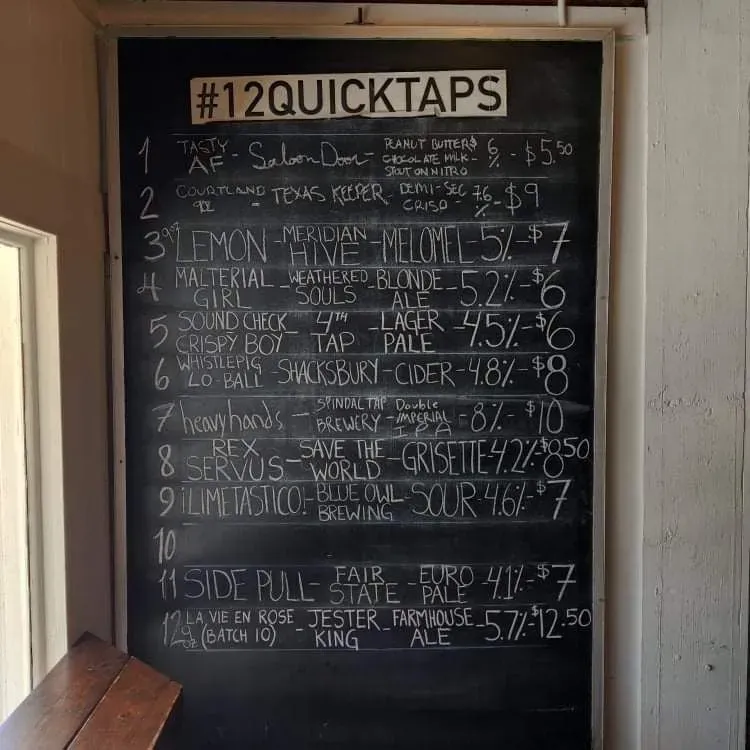 #12QUICKTAPS
1 TASTY AF - Saloon Door - PEANUT BUTTER & CHOCOLATE MILK STOUT ON NITRO - 6% - $5.50
2 COURTLAND - TEXAS KEEPER - DEMI-SEC CRISP - 7.6% - $9
3 9oz LEMON - MERIDIAN HIVE - MELOMEL - 5% - $7
4 MALTERIAL GIRL - WEATHERED SOULS - BLONDE ALE - 5.2% - $6
5 SOUND CHECK CRISPY BOY - 4TH TAP - LAGER PALE - 4.5% - $6
6 WHISTLEPIG LO-BALL - SHACKSBURY - CIDER - 4.8% - $8
7 heavyhands - SPINDALTAP BREWERY - Double IMPERIAL IPA - 8% - $10
8 REX SERVUS - SAVE THE WORLD - GRISETTE - 4.2% - $8.50
9 ¡LIMETASTICO! - BLUE OWL BREWING - SOUR - 4.6% - $7
10
11 SIDE PULL - FAIR STATE - EURO PALE - 4.1% - $7
12 9oz LA VIE EN ROSE (BATCH 10) - JESTER KING - FARMHOUSE ALE - 5.7% - $12.50